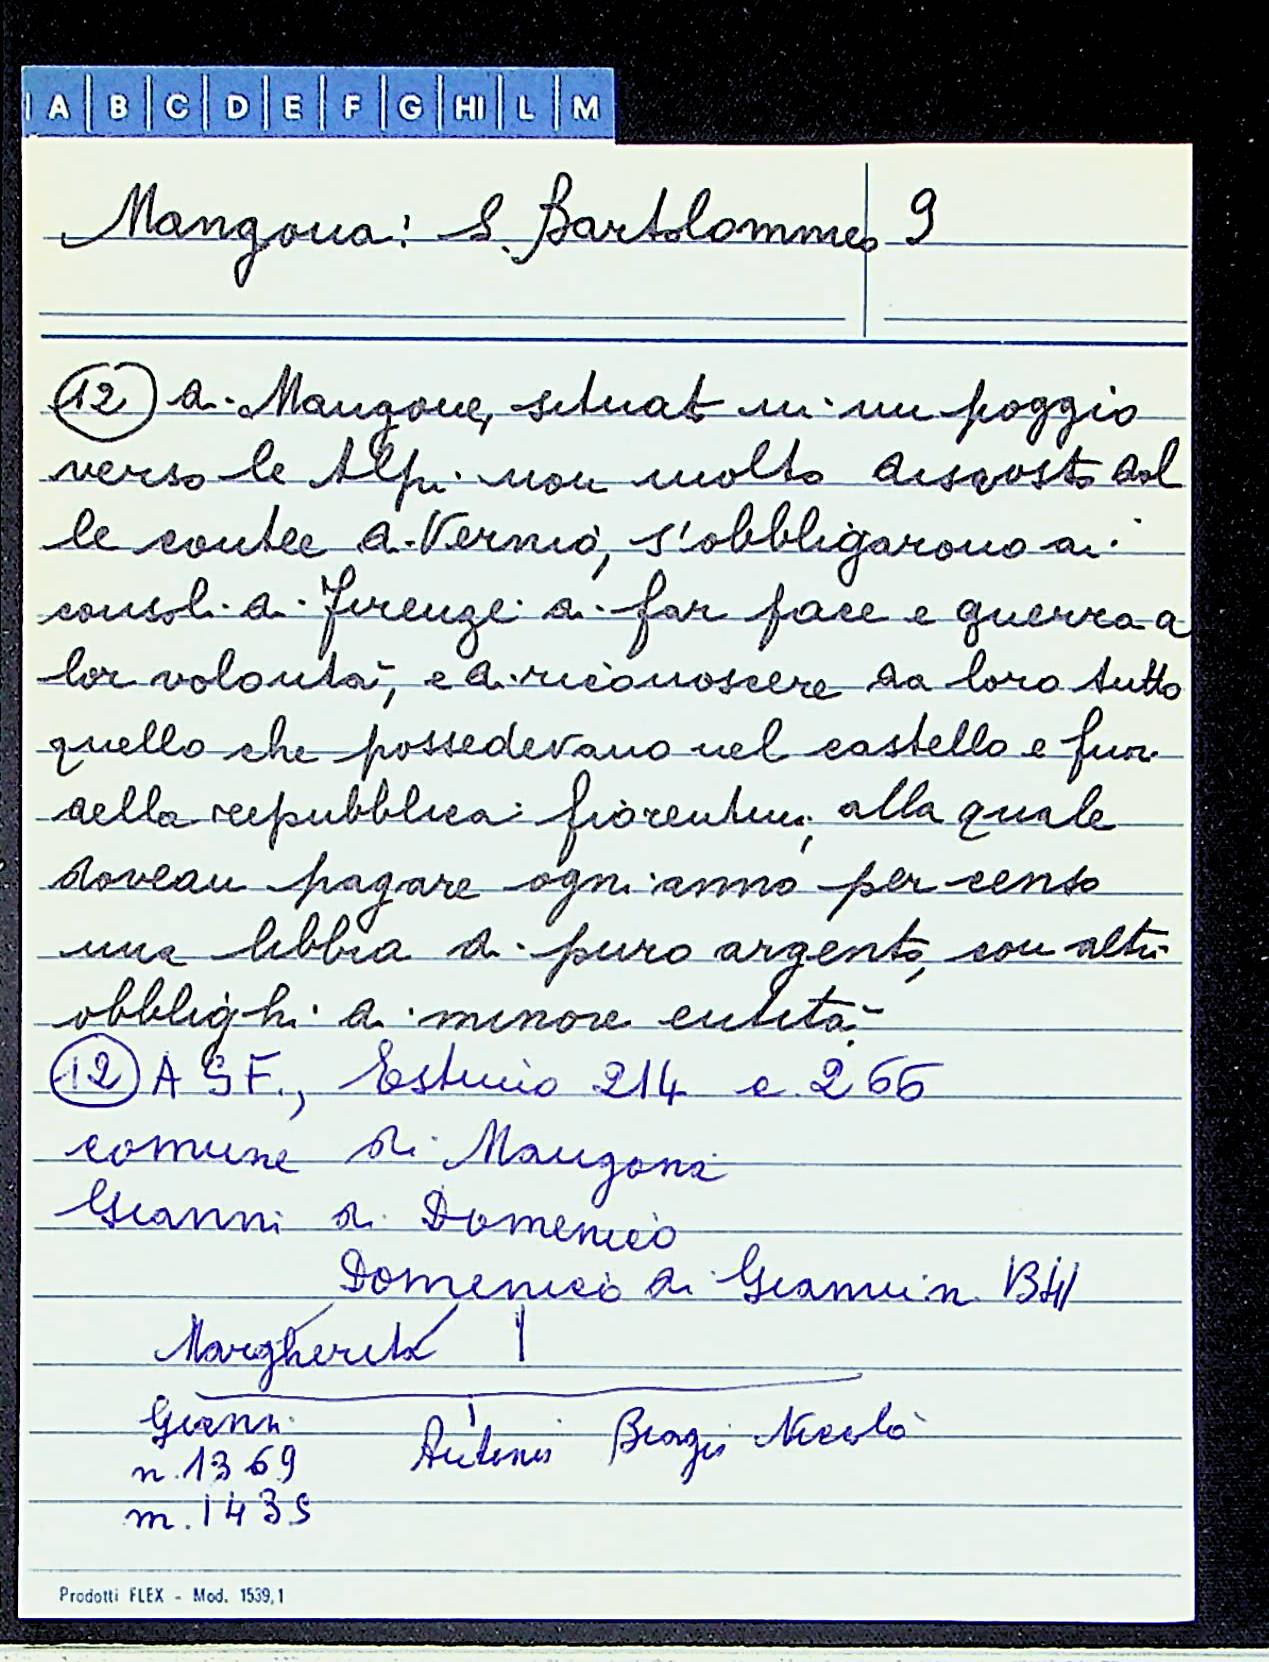 A B C D E F G HI L M
Mangona: S. Bartolommeo 9
(12) di Mangone, situato in un poggio
verso le Alpi non molto discosto dal
le contee di Vernio, s'obbligarono ai
consoli di Firenze di far pace e guerra a
lor volontà, e di riconoscere da loro tutto
quello che possedevano nel castello e fuori
della repubblica fiorentina, alla quale
dovean pagare ogni anno per censo
una libbra di puro argento, con altri
obblighi di minore entità.
(12) ASF., Estimo 214 e 266
comune di Mangona
Gianni di Domenico
Domenico di Gianni n.
Margherita
Gianni Antonio Biagio Nicolò
n. 1369
m. 1435
Prodotti FLEX - Mod. 1539,1